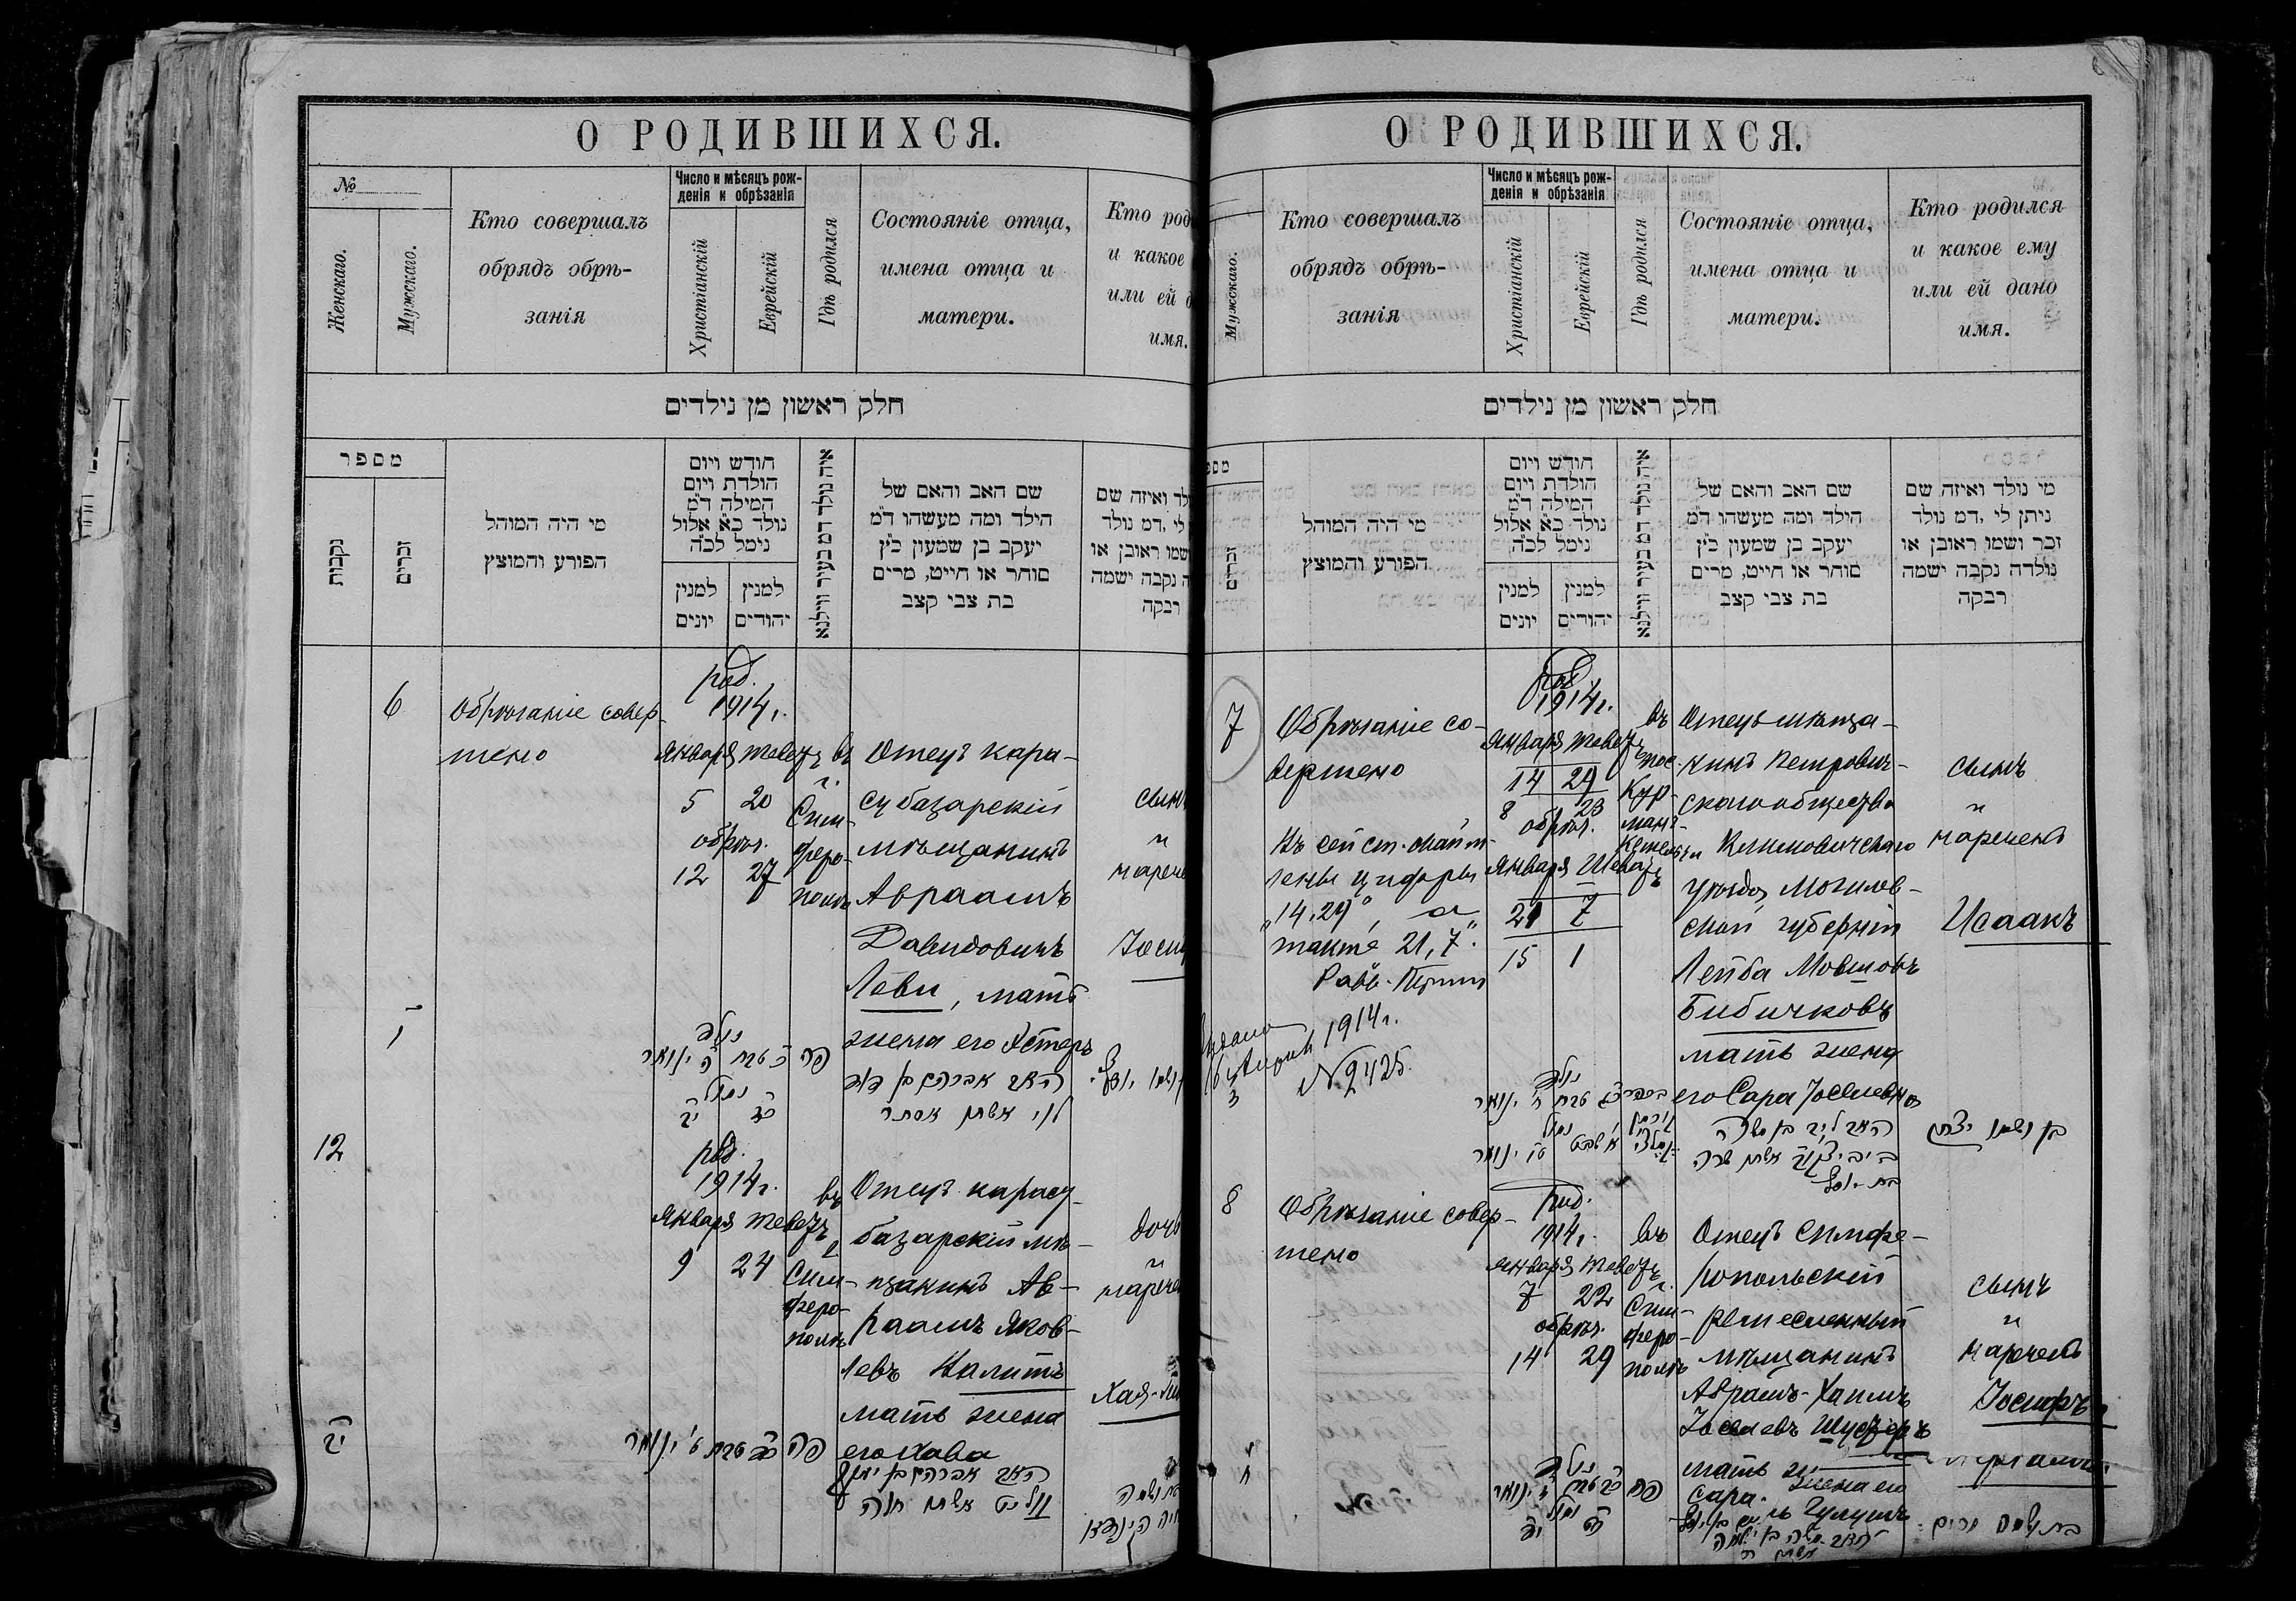 О РОДИВШИХСЯ.
№
Женскаго.
Мужскаго.
Кто совершалъ
обрядъ обрѣ-
занія
Число и мѣсяцъ рож-
денія и обрѣзанія
Христіанскій
Еврейскій
Гдѣ родился
Состояніе отца,
имена отца и
матери.
Кто род
и какое
или ей д
имя.
חלק ראשון מן נילדים
מספר
נקבות
זכרים
מי היה המוהל
הפורע והמוצץ
חודש ויום
הולדת ויום
המילה ד״מ
נולד כ״א אלול
נימל לכ״ה
למנין
יונים
למנין
יהודים
איה נולד דמ בעיר ווילנא
שם האב והאם של
הילד ומה מעשהו ד״מ
יעקב בן שמעון כ״ץ
סוחר או חייט, מרים
בת צבי קצב
לד ואיזה שם
לי, דמ נולד
ושמו ראובן או
ה נקבה ישמה
רבקה
6
Обрѣзаніе совер-
шено
род.
1914г.
Января Тевезъ
5 20
обрѣз.
12 27
въ
г.
Сим-
феро-
полѣ
Отецъ кара-
субазарскій
мѣщанинъ
Авраамъ
Давидовичъ
Леви, мать
жена его Эстеръ
сынъ
и
нарече
Іоси
נולד
פה כ טבת ה ינואר
נמול
כז יב
האב אברהם בן דוד
לוי אשתו אסתר
12
род.
1914г.
Января Тевезъ
9 24
въ
г.
Сим-
феро-
полѣ
Отецъ карасу-
базарскій мѣ-
щанинъ Ав-
раамъ Яков-
левъ Валитъ
мать жена
его Хава
дочь
и
нарече
Хая-
יב
פה כד טבת ט ינואר
האב אברהם בן יעקב
וליט אשתו חוה
О РОДИВШИХСЯ.
Мужскаго.
Кто совершалъ
обрядъ обрѣ-
занія
Число и мѣсяцъ рож-
денія и обрѣзанія
Христіанскій
Еврейскій
Гдѣ родился
Состояніе отца,
имена отца и
матери.
Кто родился
и какое ему
или ей дано
имя.
חלק ראשון מן נילדים
מספ
זכרים
מי היה המוהל
הפורע והמוצץ
חודש ויום
הולדת ויום
המילה ד״מ
נולד כ״א אלול
נימל לכ״ה
למנין
יונים
למנין
יהודים
איה נולד דמ בעיר ווילנא
שם האב והאם של
הילד ומה מעשהו ד״מ
יעקב בן שמעון כ״ץ
סוחר או חייט, מרים
בת צבי קצב
מי נולד ואיזה שם
ניתן לי, דמ נולד
זכר ושמו ראובן או
נולדה נקבה ישמה
רבקה
7
Обрѣзаніе со-
вершено
Въ сей ст.
цифры
"14, 29", а
также 21, 7".
Рав.
1914г.
№ 2425.
род.
1914г.
Января Тевезъ
14 29
8 23
обрѣз.
Января Шевазъ
21 7
15 1
въ
пос.
Кур-
ман-
Отецъ мѣща-
нинъ Петрович-
скаго общества
Климовичскаго
уѣзда, Могилев-
ской губерніи
Лейба Мовшовъ
Бибичковъ
мать жена
его Сара Іоселевна
сынъ
и
нареченъ
Исаакъ
נולד
נמול
האב ליב בן משה
ביביצקוב אשתו שרה
בת יוסף
בן ושמו יצחק
8
Обрѣзаніе совер-
шено
род.
1914г.
Января Тевезъ
7 22
обрѣз.
14 29
въ
г.
Сим-
феро-
полѣ
Отецъ Симфе-
ропольскій
ремесленный
мѣщанинъ
Абрамъ-Хаимъ
Іоселевъ Шустеръ
мать
жена его
Сара.
сынъ
и
нареченъ
Іосифъ
ח
נולד
פה כב טבת ז ינואר
נמול
כט יד